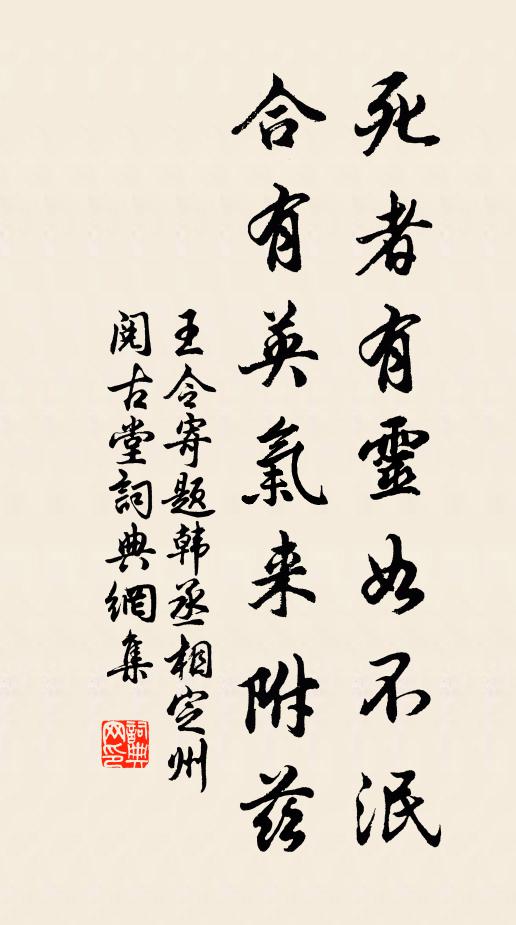 死者有靈如不泯
合有英氣来附茲
王令寄题韩丞相定州
閱古堂詞典網集
詞典
网印